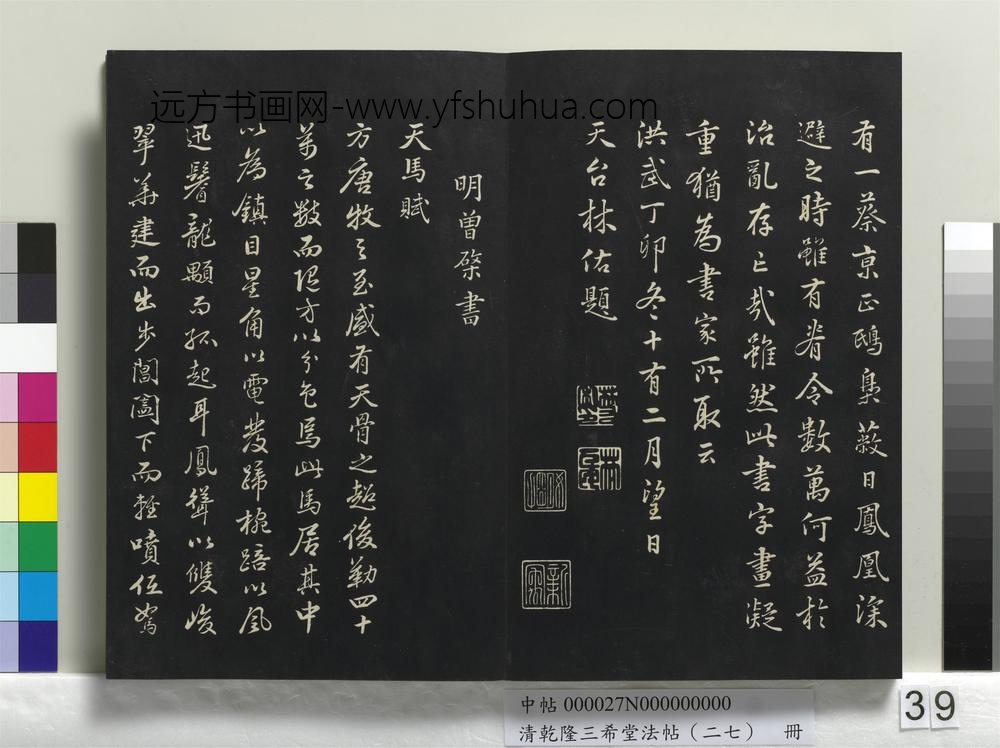 远方书画网-www.yfshuhua.com
有一蔡京正鴟梟蔽日鳳凰深
避之時雖有眷令數萬何益於
治亂存亡哉雖然此書字畫凝
重猶為書家所取云
洪武丁卯冬十有二月望日
天台林佑題
明曾棨書
天馬賦
方唐牧之至盛有天骨之超俊勒四十
萬之數而隨方以分色焉此馬居其中
以為鎮目星角以電發蹄椀踣以風
迅鬐龍顒而孤起耳鳳聳以雙峻
翠華建而出步閶闔下而輕噴低駑
中帖 000027N000000000
清乾隆三希堂法帖（二七） 冊
39